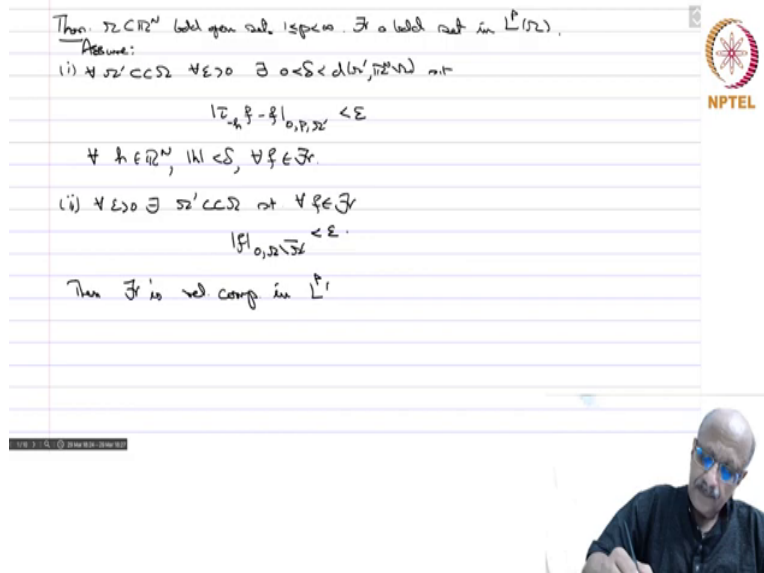 Thm. Ω⊂ℝᴺ bdd open set. 1≤p<∞. ℱ a bdd set in Lᵖ(Ω).
Assume:
(i) ∀ Ω'⊂⊂Ω ∀ε>0 ∃ 0<δ<d(Ω',ℝᴺ\Ω) s.t
|τ₋ₕ f - f|₀,ₚ,Ω' < ε
∀ h∈ℝᴺ, |h|<δ, ∀f∈ℱ.
(ii) ∀ε>0 ∃ Ω'⊂⊂Ω s.t ∀ f∈ℱ
|f|₀,Ω\Ω̅' < ε.
Then ℱ is rel. comp in Lᵖ(
NPTEL